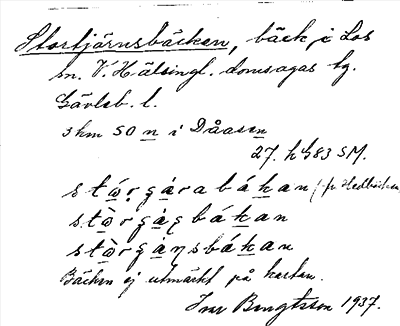 Stortjärnsbäcken, bäck i Los
sn. V. Hälsingl. domsagas tg.
Gävleb. l.
3 km SO n i Dåasen
27. h 583 SM.
stẁrgàrabákan (fr Hedbäcken
stẁrgàçbákan
stẁrgàṇsbákan
Bäcken ej utmärkt på kartan.
Ivar Bengtsson 1937.